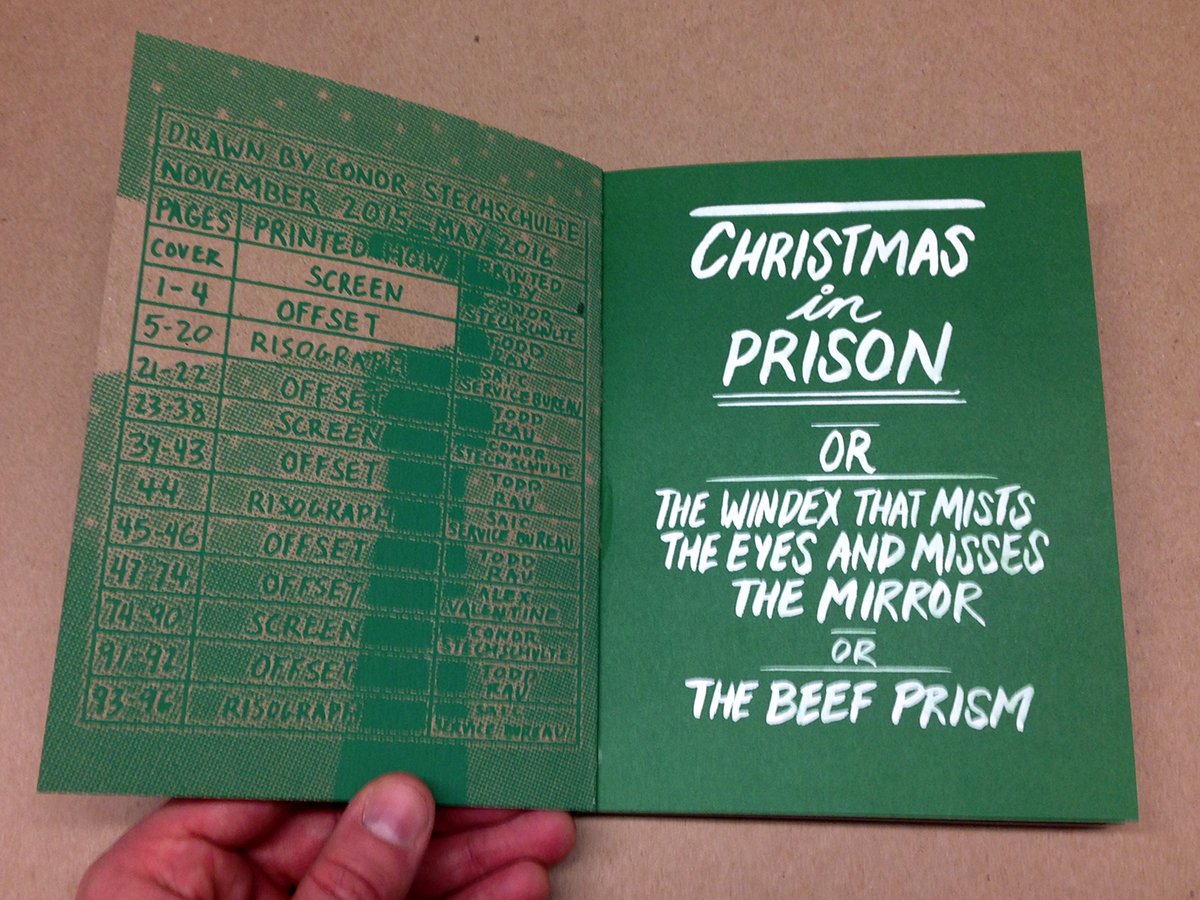 DRAWN BY CONOR STECHSCHULTE
NOVEMBER 2015-MAY 2016
PAGES PRINTED HOW PRINTED BY
COVER SCREEN CONOR STECHSCHULTE
1-4 OFFSET TODD RAU
5-20 RISOGRAPH SAIC SERVICE BUREAU
21-22 OFFSET TODD RAU
23-38 SCREEN CONOR STECHSCHULTE
39-43 OFFSET TODD RAU
44 RISOGRAPH SAIC SERVICE BUREAU
45-46 OFFSET TODD RAU
47-74 OFFSET ALEX VALENTINE
74-90 SCREEN CONOR STECHSCHULTE
91-92 OFFSET TODD RAU
93-96 RISOGRAPH SAIC SERVICE BUREAU
CHRISTMAS
in
PRISON
OR
THE WINDEX THAT MISTS
THE EYES AND MISSES
THE MIRROR
OR
THE BEEF PRISM